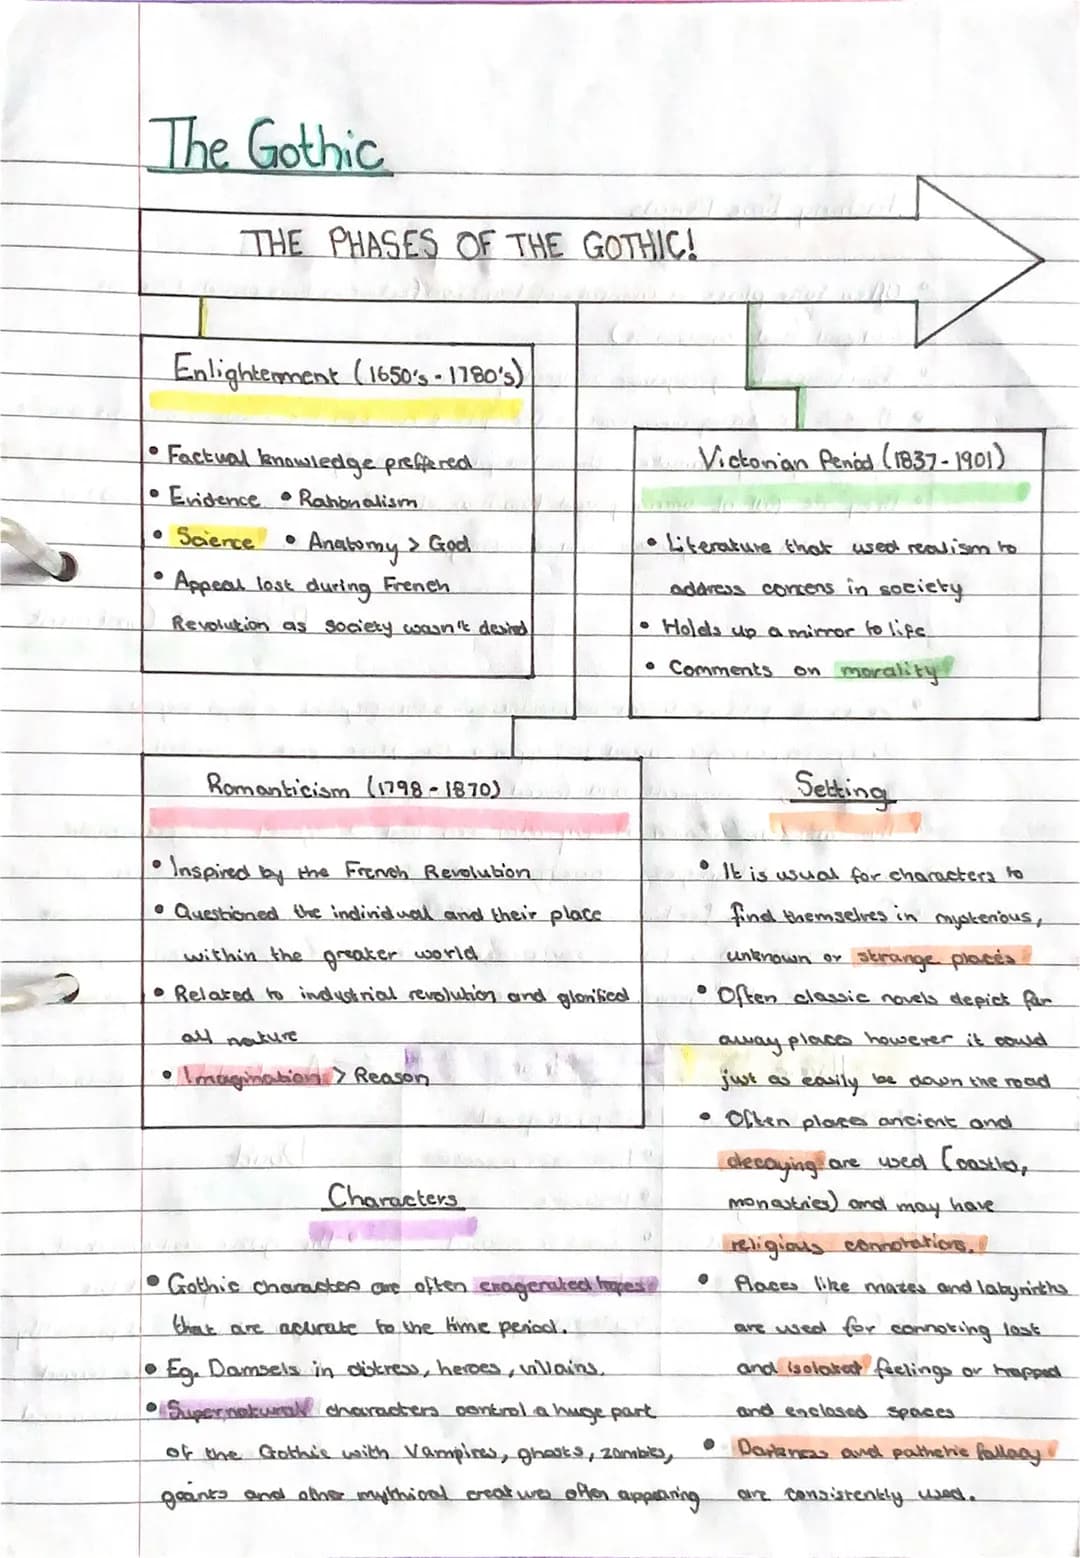 The Gothic
THE PHASES OF THE GOTHIC!
Enlightenment (1650's - 1780's)
• Factual knowledge preffered
• Evidence • Rationalism
• Science • Anatomy > God
• Appeal lost during French
Revolution as society wasn't desired
Victorian Period (1837-1901)
• Literature that used realism to
address concens in society
• Holds up a mirror to life
• Comments on morality
Romanticism (1798 - 1870)
• Inspired by the French Revolution
• Questioned the individual and their place
within the greater world
• Related to industrial revolution and glorified
all nature
• Imagination > Reason
Characters
• Gothic characters are often exagerated tropes
that are acurate to the time period.
• Eg. Damsels in distress, heroes, villains.
• Supernatural characters control a huge part
of the Gothic with Vampires, ghosts, zombies,
geants and other mythical creatures often appearing
Setting
• It is usual for characters to
find themselves in mysterious,
unknown or strange places
• Often classic novels depict far
away places however it could
just as easily be down the road
• Often places ancient and
decaying are used (castles,
monastries) and may have
religious connotations.
• Places like mazes and labyrinths
are used for connoting lost
and isolated feelings or trapped
and enclosed spaces
• Darkness and pathetic fallacy
are consistently used.